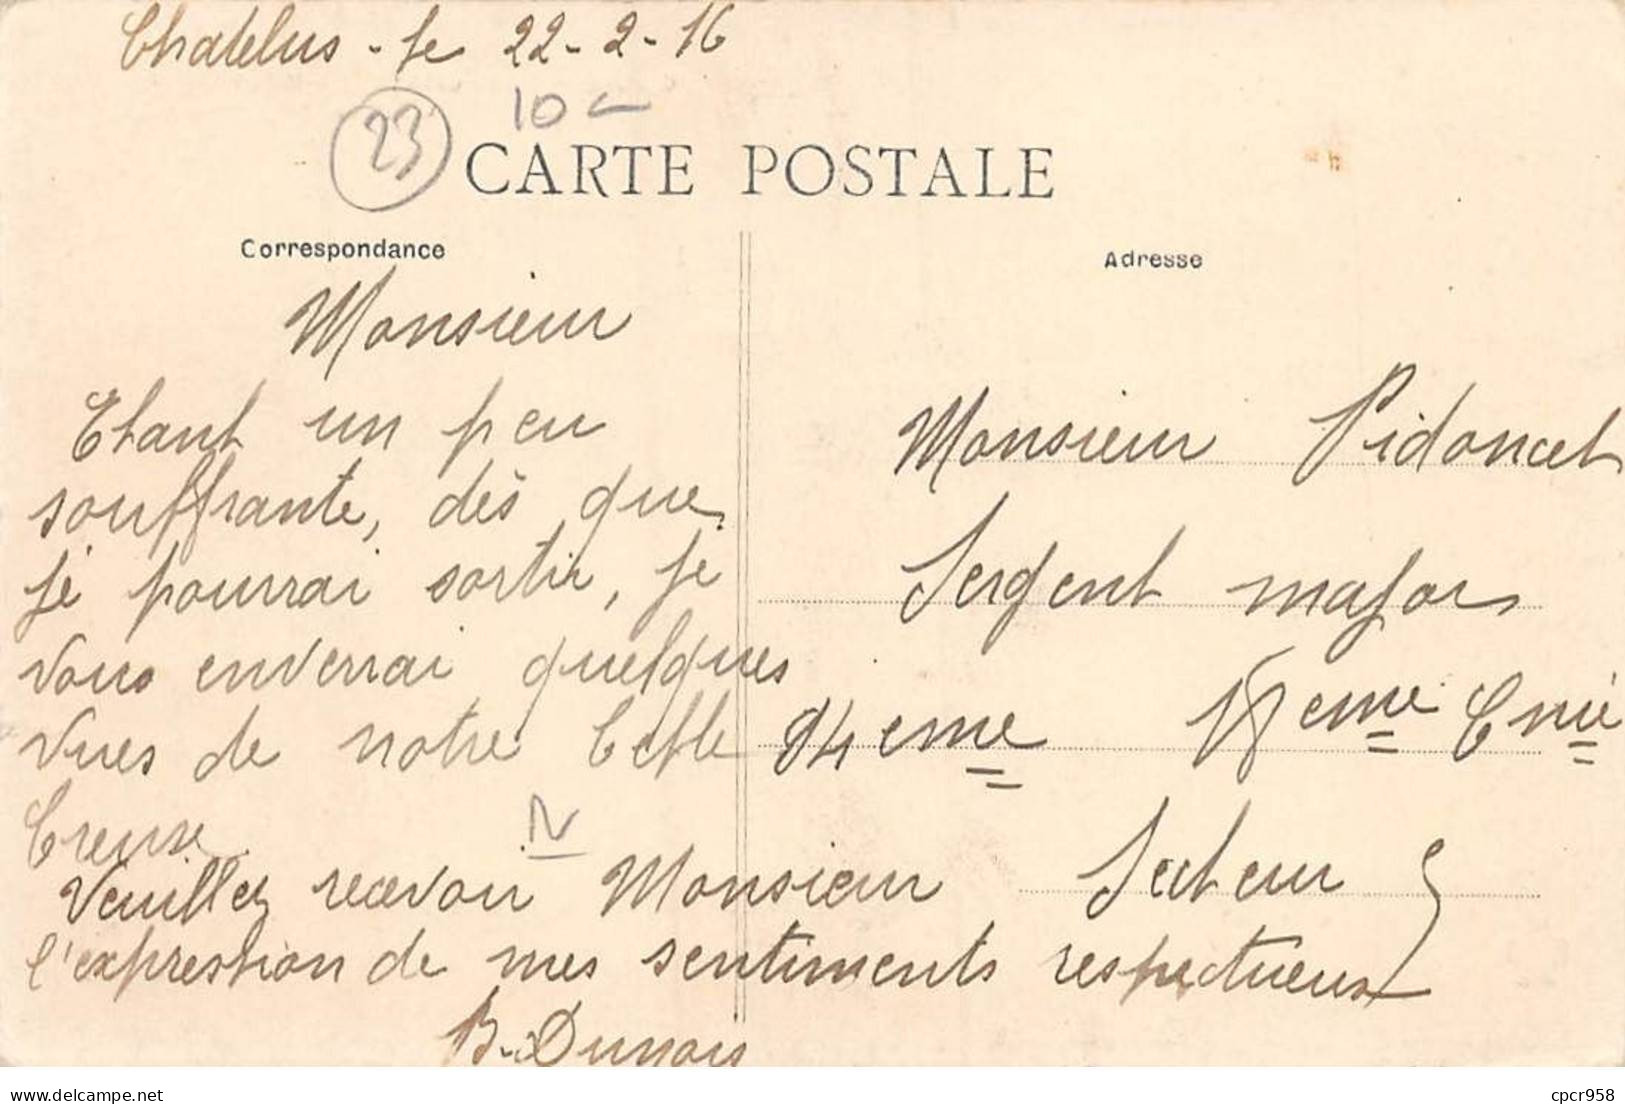 Chatelus - le 22-2-16
10 -
23
CARTE POSTALE
Correspondance
Monsieur
Etant un peu
souffrante, dès que
je pourrai sortir, je
vous enverrai quelques
vues de notre belle
Creuse
N
Veuillez recevoir Monsieur
l'expression de mes sentiments respectueux
B. Dunois
Adresse
Monsieur Pidoncet
Sergent major
94eme 18eme Cnie
Secteur
delcampe.net
cpcr958